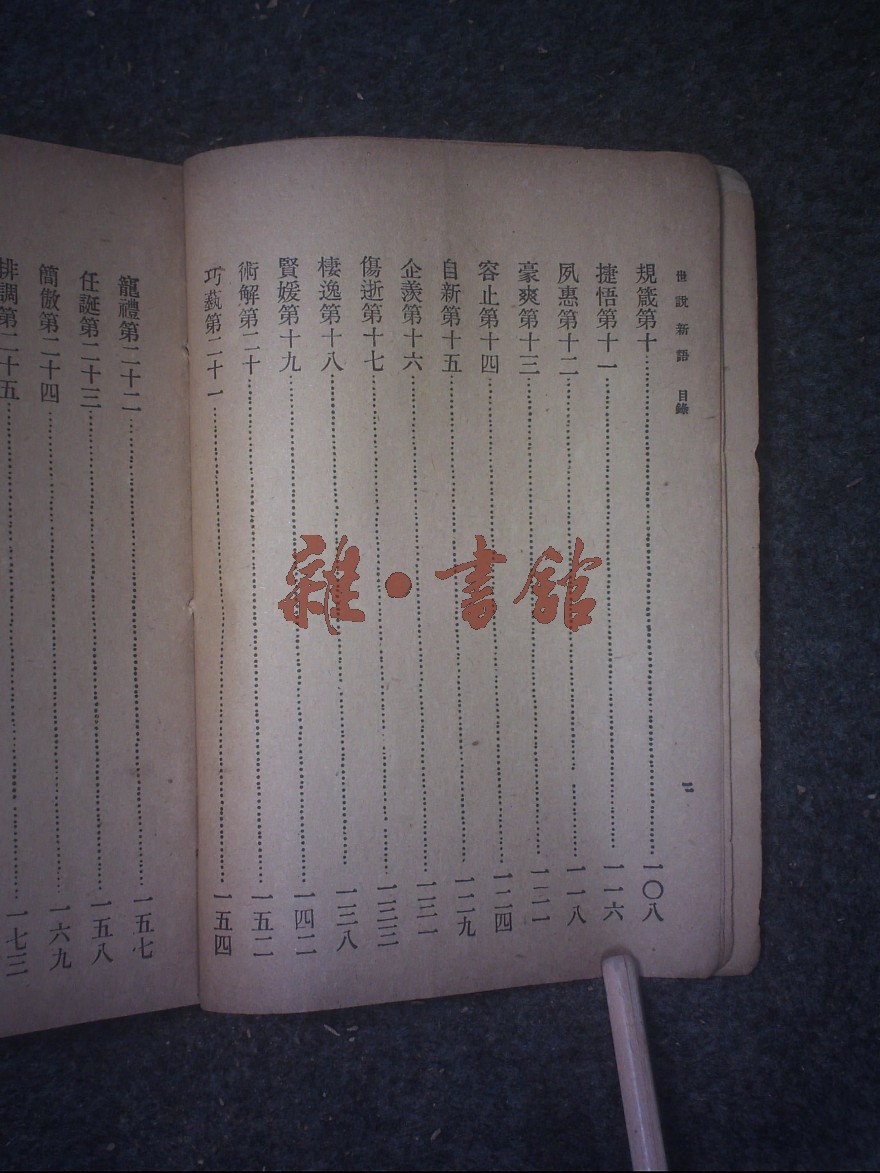 世説新語 目錄
規箴第十……一〇八
捷悟第十一……一一六
夙惠第十二……一一八
豪爽第十三……一二一
容止第十四……一二四
自新第十五……一二九
企羨第十六……一三一
傷逝第十七……一三三
棲逸第十八……一三八
賢媛第十九……一四二
術解第二十……一五二
巧藝第二十一……一五四
二
寵禮第二十二……一五七
任誕第二十三……一五八
簡傲第二十四……一六九
排調第二十五……一七三
雜·書館